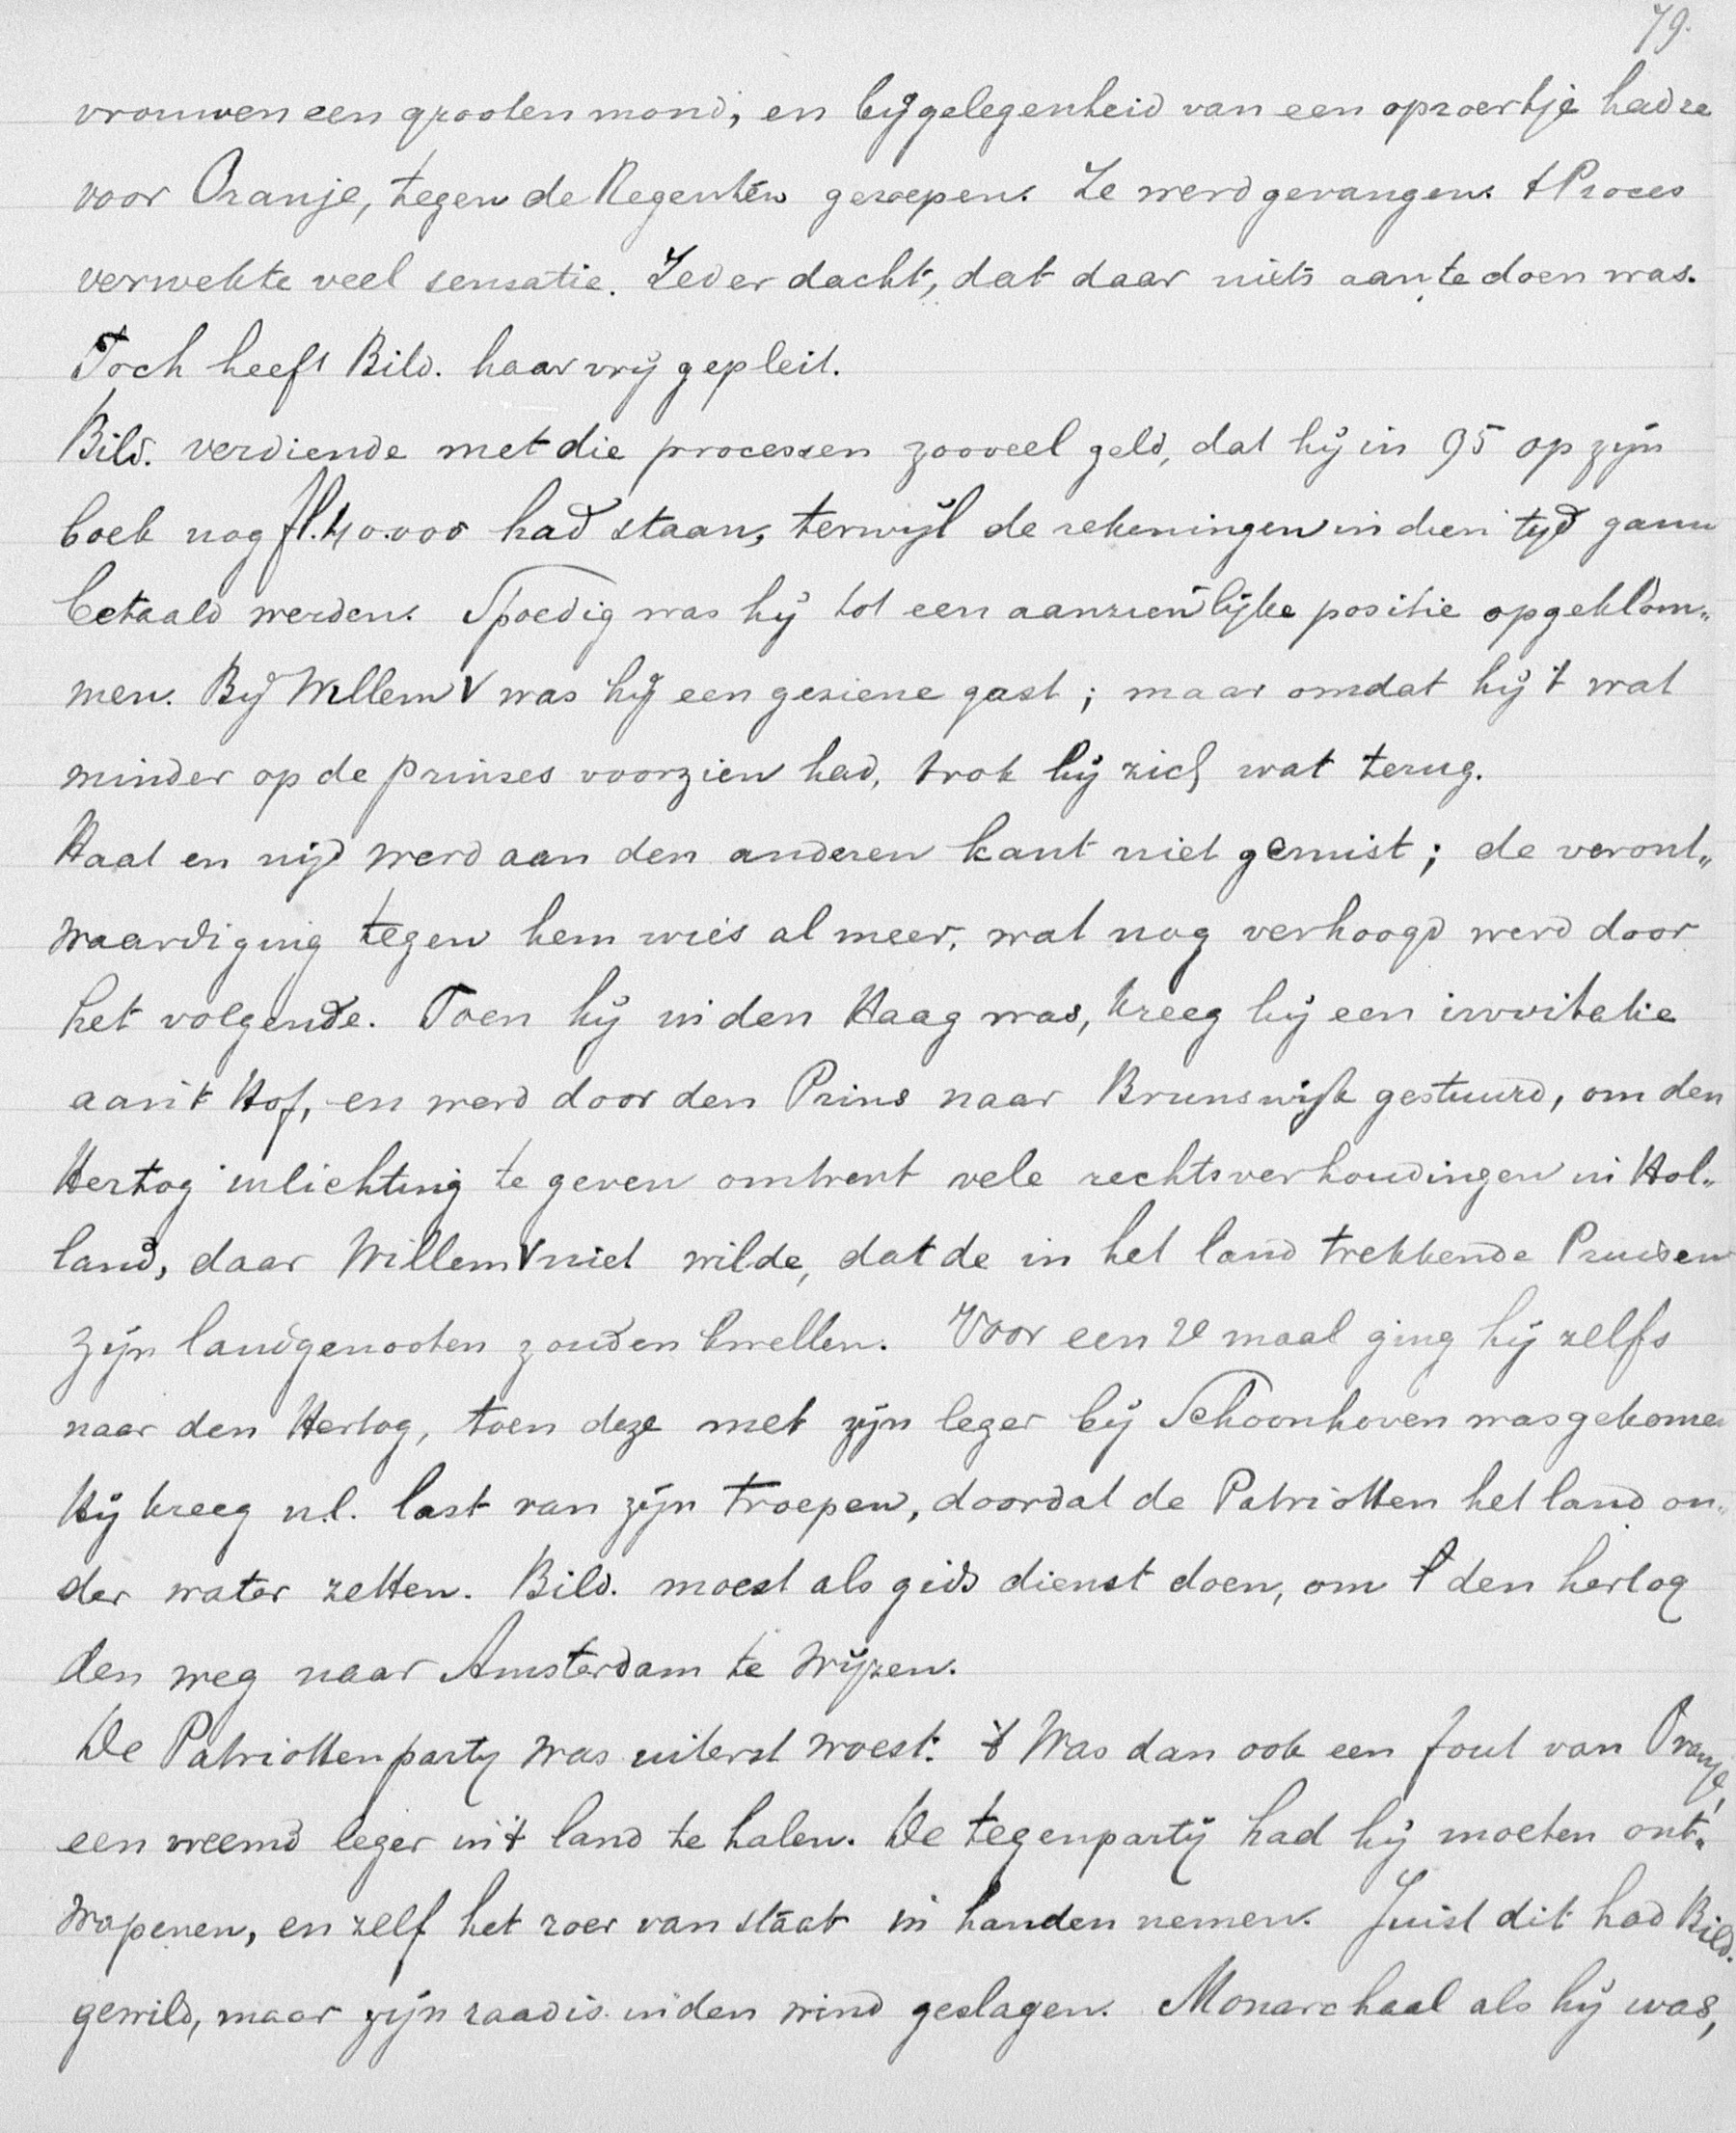 79.
vrouwen een grooten mond, en bij gelegenheid van een oproertje had ze
voor Oranje, tegen de Regenten geroepen. Ze werd gevangen. 't Proces
verwekte veel sensatie. Ieder dacht, dat daar niets aan te doen was.
Toch heeft Bild. haar vrij gepleit.
Bild. verdiende met die processen zooveel geld, dat hij in 95 op zijn
boek nog fl. 40.000 had staan, terwijl de rekeningen in dien tijd gauw
betaald werden. Spoedig was hij tot een aanzienlijke positie opgeklom„
men. Bij Willem V was hij een geziene gast; maar omdat hij 't wat
minder op de prinses voorzien had, trok hij zich wat terug.
Haat en nijd werd aan den anderen kant niet gemist; de veront„
waardiging tegen hem wies al meer, wat nog verhoogd werd door
het volgende. Toen hij in den Haag was, kreeg hij een invitatie
aan 't Hof, en werd door den Prins naar Brunswijk gestuurd, om den
Hertog inlichting te geven omtrent vele rechtsverhoudingen in Hol„
land, daar Willem V niet wilde, dat de in het land trekkende Pruisen
zijn landgenooten zouden kwellen. Voor een 2e maal ging hij zelfs
naar den Hertog, toen deze met zijn leger bij Schoonhoven was gekomen
Hij kreeg n.l. last van zijn troepen, doordat de Patriotten het land on„
der water zetten. Bild. moest als gids dienst doen, om den hertog
den weg naar Amsterdam te wijzen.
De Patriottenparty was uiterst woest. 't Was dan ook een fout van Oranje,
een vreemd leger in 't land te halen. De tegenpartij had hij moeten ont„
wapenen, en zelf het roer van staat in handen nemen. Juist dit had Bild.
gewild, maar zijn raad is in den wind geslagen. Monarchaal als hij was,